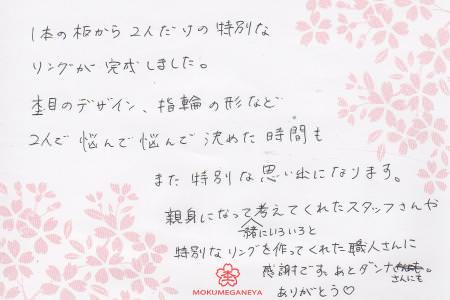 1本の板から2人だけの特別な
リングが完成しました。
杢目のデザイン、指輪の形など
2人で悩んで悩んで決めた時間も
また特別な思い出になります。
親身になって考えてくれたスタッフさんや
一緒にいろいろと
特別なリングを作ってくれた職人さんに
感謝です。あとダンナ
さんにも。
ありがとう♡
MOKUMEGANEYA